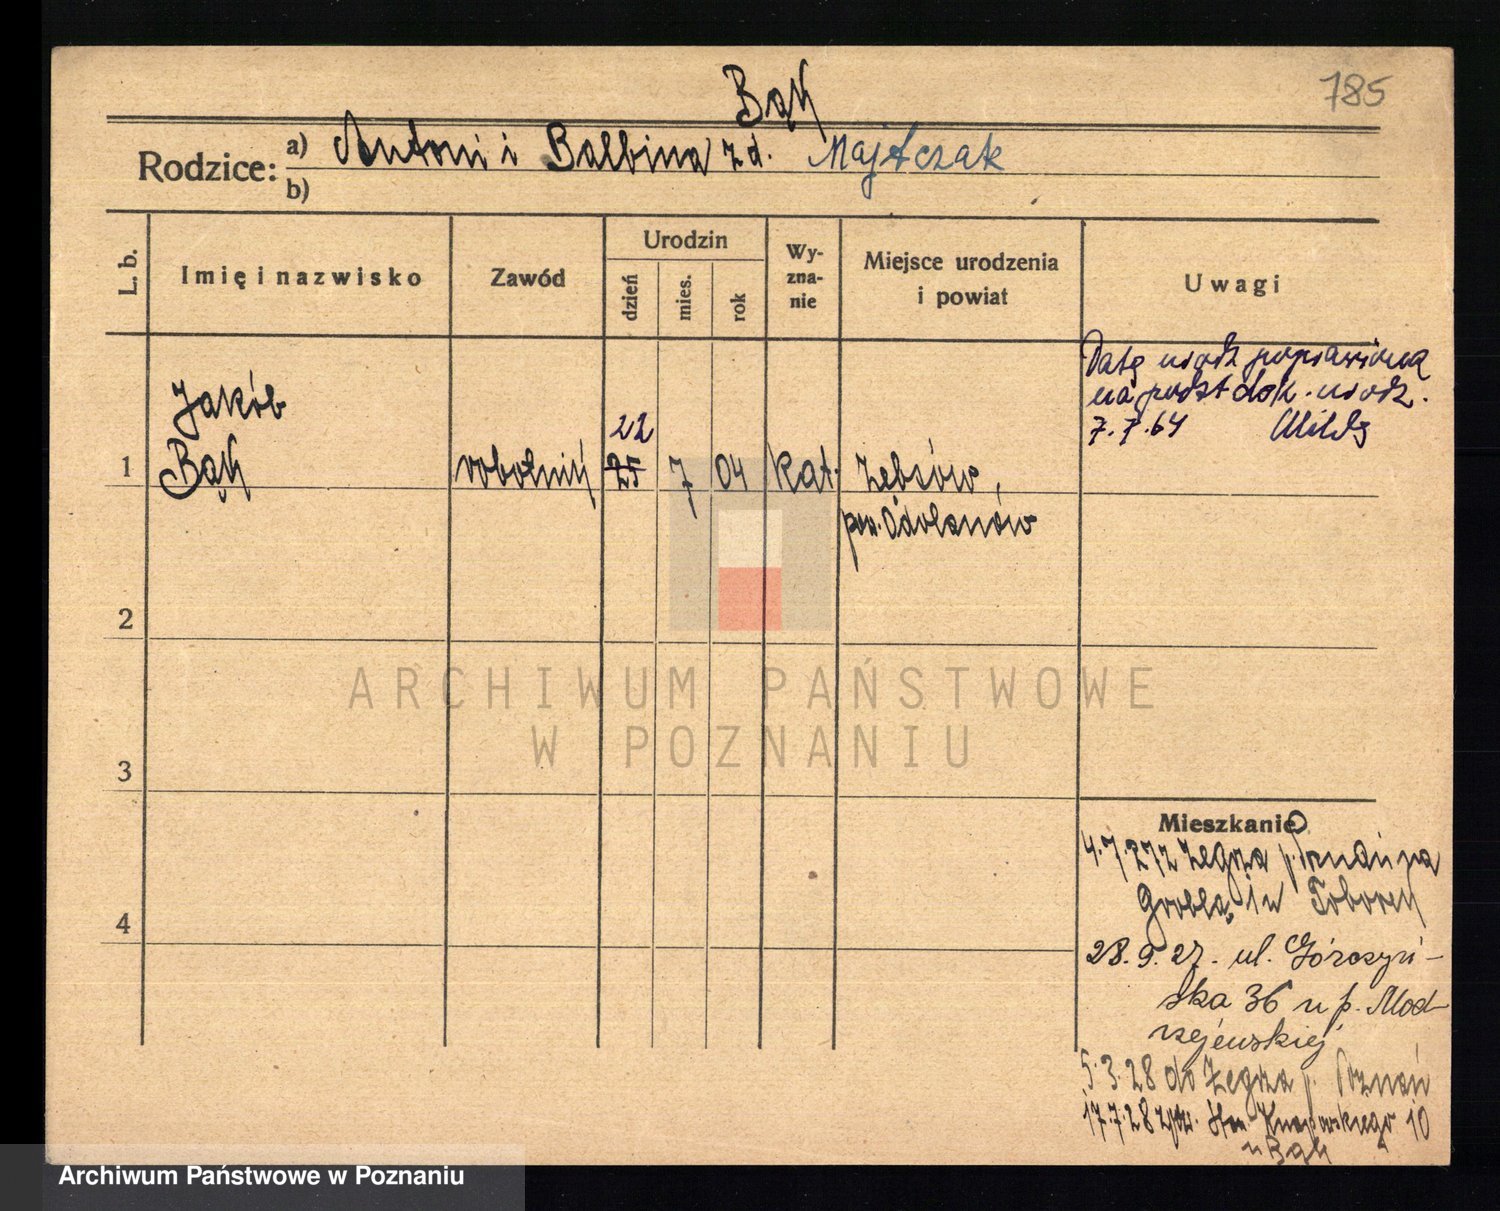 785
Bąk
Rodzice: a) Antoni i Balbina z d. Majtczak
b)
L. b.
Imię i nazwisko
Zawód
Urodzin
dzień
mies.
rok
Wy-
zna-
nie
Miejsce urodzenia
i powiat
Uwagi
Datę urodz poprawiono
na podst dok. urodz.
7.7.64
Jakób
22
1 Bąk robotnik 25 7 04 kat. Zębców,
pow. Odolanów
2
3
4
Mieszkanie
4.7.27 z Zegrza p. Poznań na
Groblą 1 u
28.9.27. ul. Górczyń-
ska 36 u p. Mod-
rzejewskiej
5.3.28 do Zegrza p. Poznań
17.7.28 Knapowskiego 10
u Bąk
ARCHIWUM PAŃSTWOWE
W POZNANIU
Archiwum Państwowe w Poznaniu